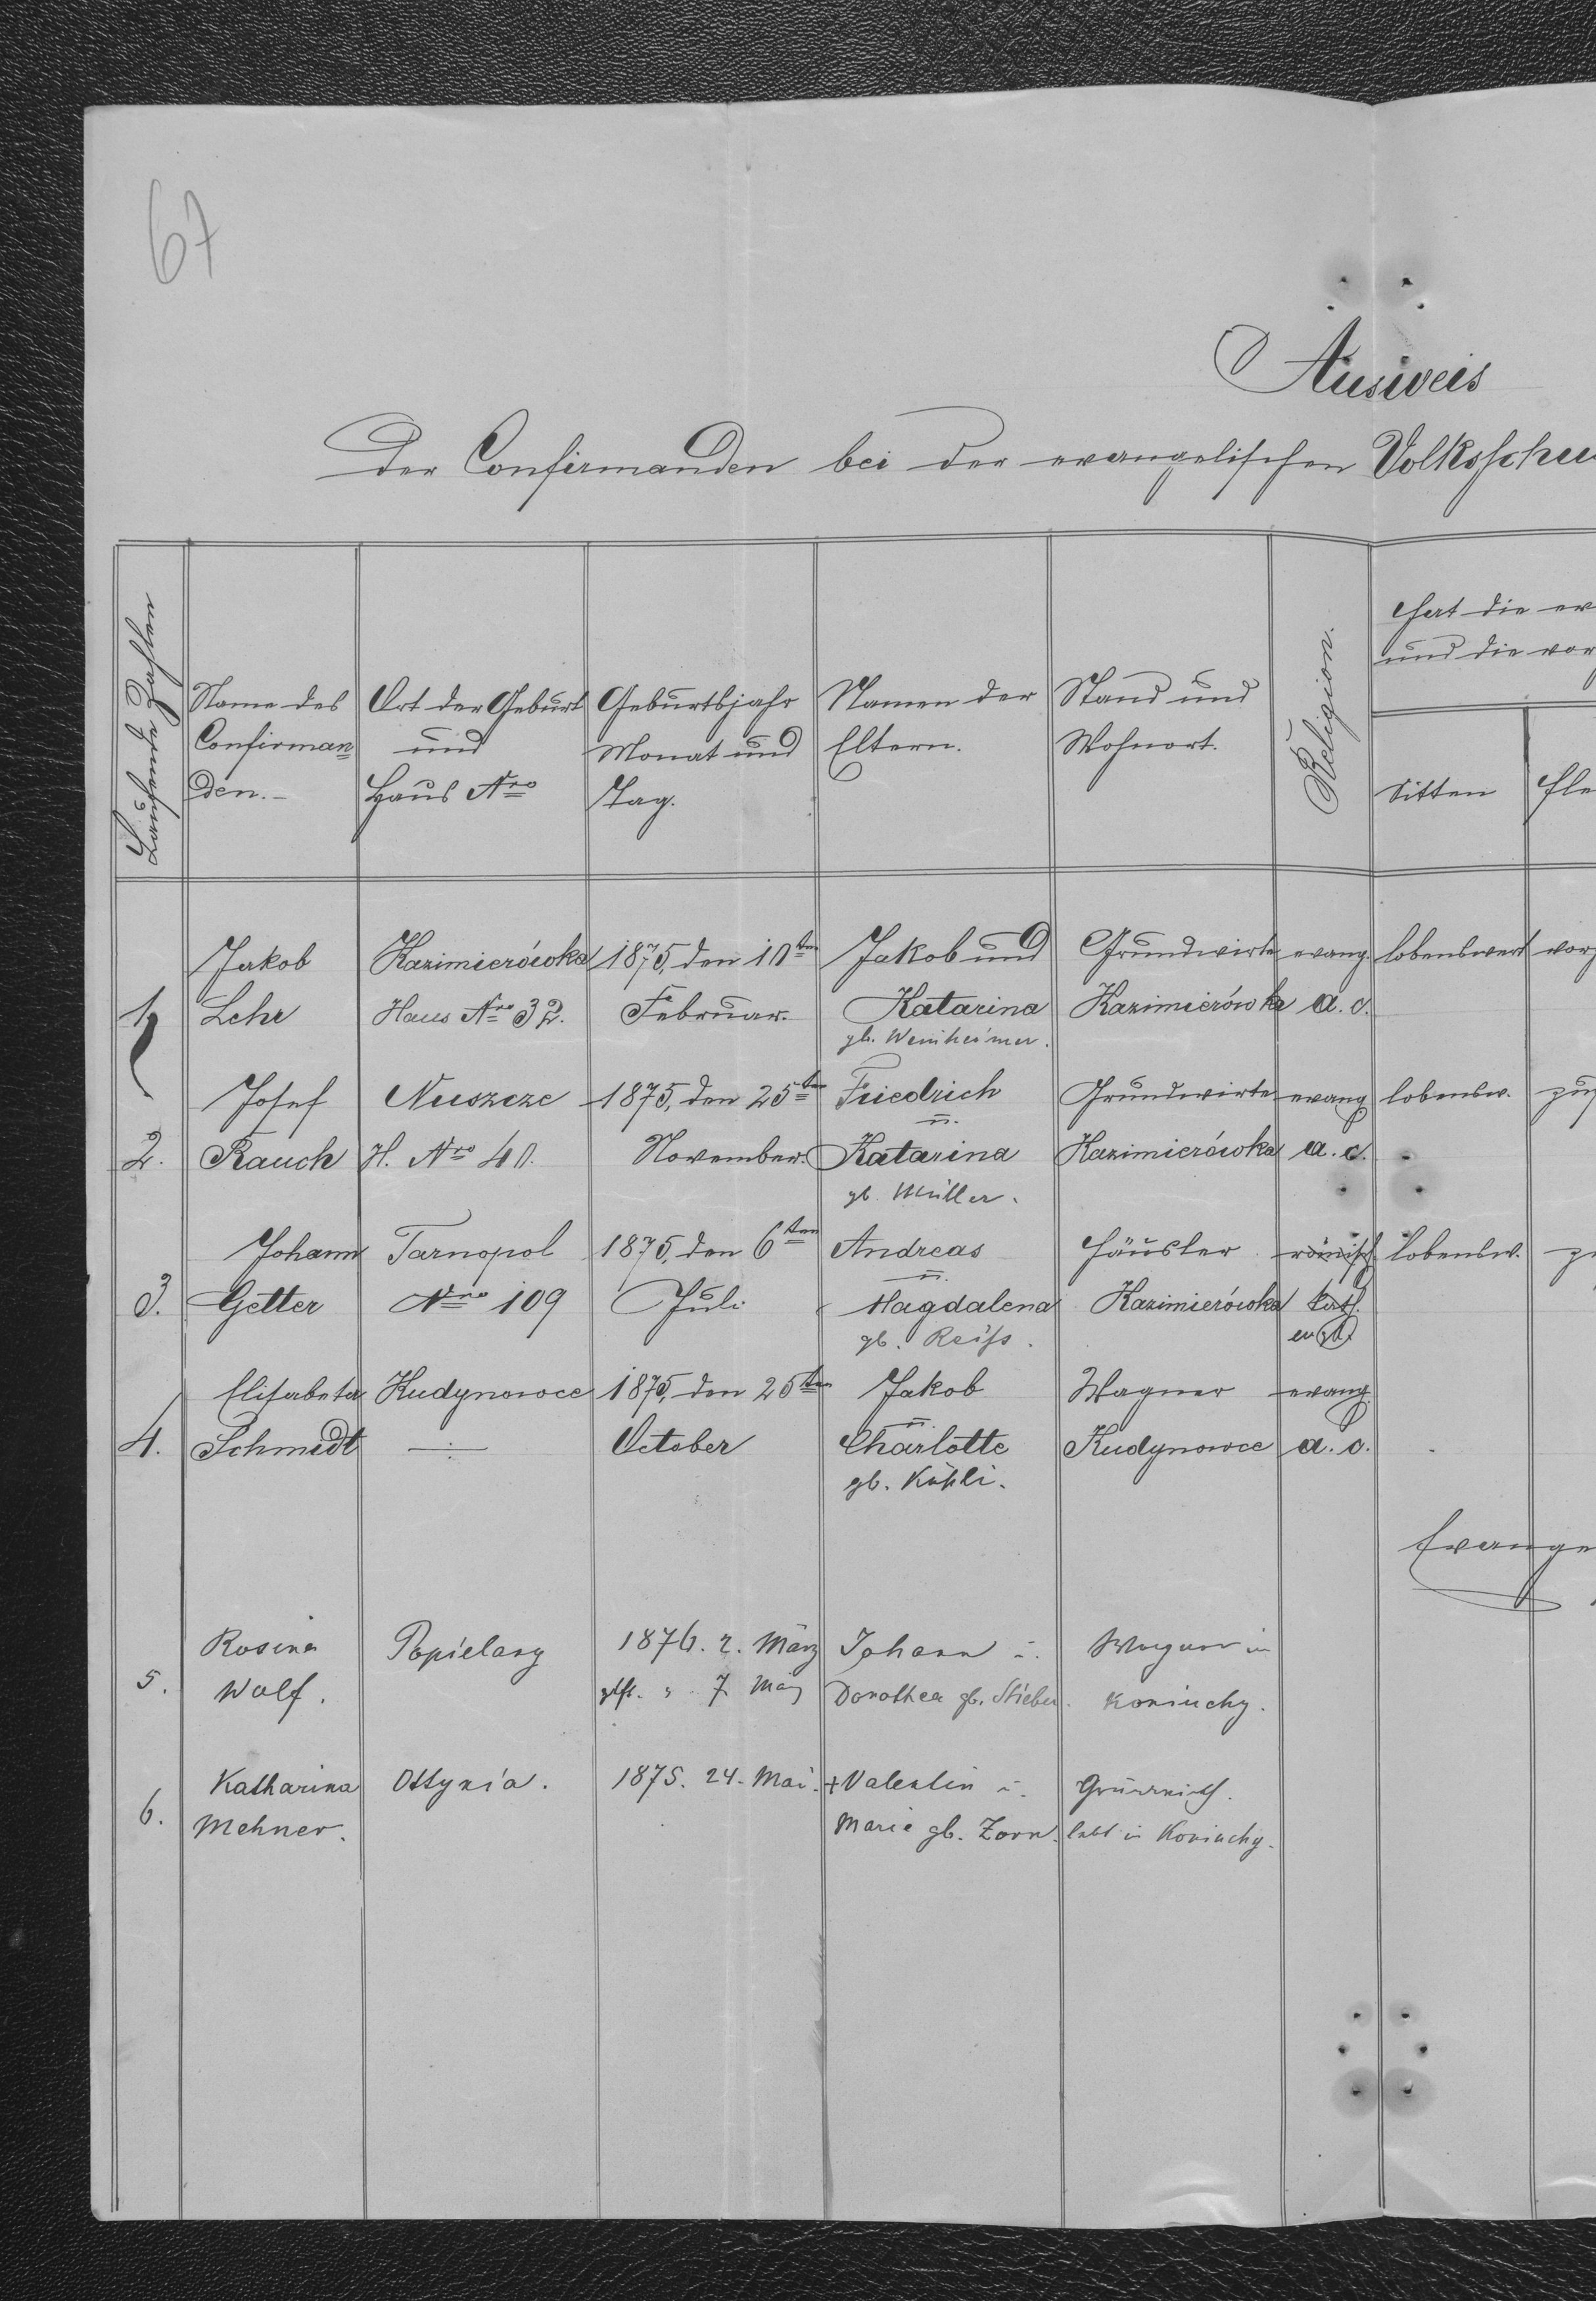 67
Ausweis
der Confirmanden bei der evangelischen Volksschu
Laufende Zahlen
Name des
Confirman
den.-
Ort der Geburt
und
Haus Nro
Geburtsjahr
Monat und
Tag.
Namen der
Eltern.
Stand und
Wohnort.
Religion.
Hat die ev
und die vor
Sitten
Fle
1,
Jakob
Lehr
Kazimierówka
Haus Nro 32.
1875, den 10ten
Februar.
Jakob und
Katarina
gb. Weinheimer.
Grundwirte
Kazimierówka
evang.
a. c.
lobenswert
2.
Josef
Rauch
Nuszcze
H. Nro 40.
1875, den 25ten
November.
Friedrich
u.
Katarina
gb. Müller.
Grundwirte
Kazimierówka
evang
a. c.
lobensw.
3.
Johann
Getter
Tarnopol
Nro 109
1875, den 6ten
Juli
Andreas
u.
Magdalena
gb. Reiss.
Häusler
Kazimierówka
römisch
kath.
lobensw.
4.
Elisabeta
Schmidt
Kudynowce
1875, den 25ten
October
Jakob
u.
Charlotte
gb. Köhli.
Wagner
Kudynowce
evang.
a. c.
Evange
5.
Rosina
Wolf.
Popielany
1876. 2. März
7. März
Johann u.
Dorothea gb. Stieber.
Wagner in
Koniuchy.
6.
Katharina
Mehner.
Ottynia.
1875. 24. Mai.
+Valentin u.
Marie gb. Zorn.
Grundwirth.
lebt in Koniuchy.